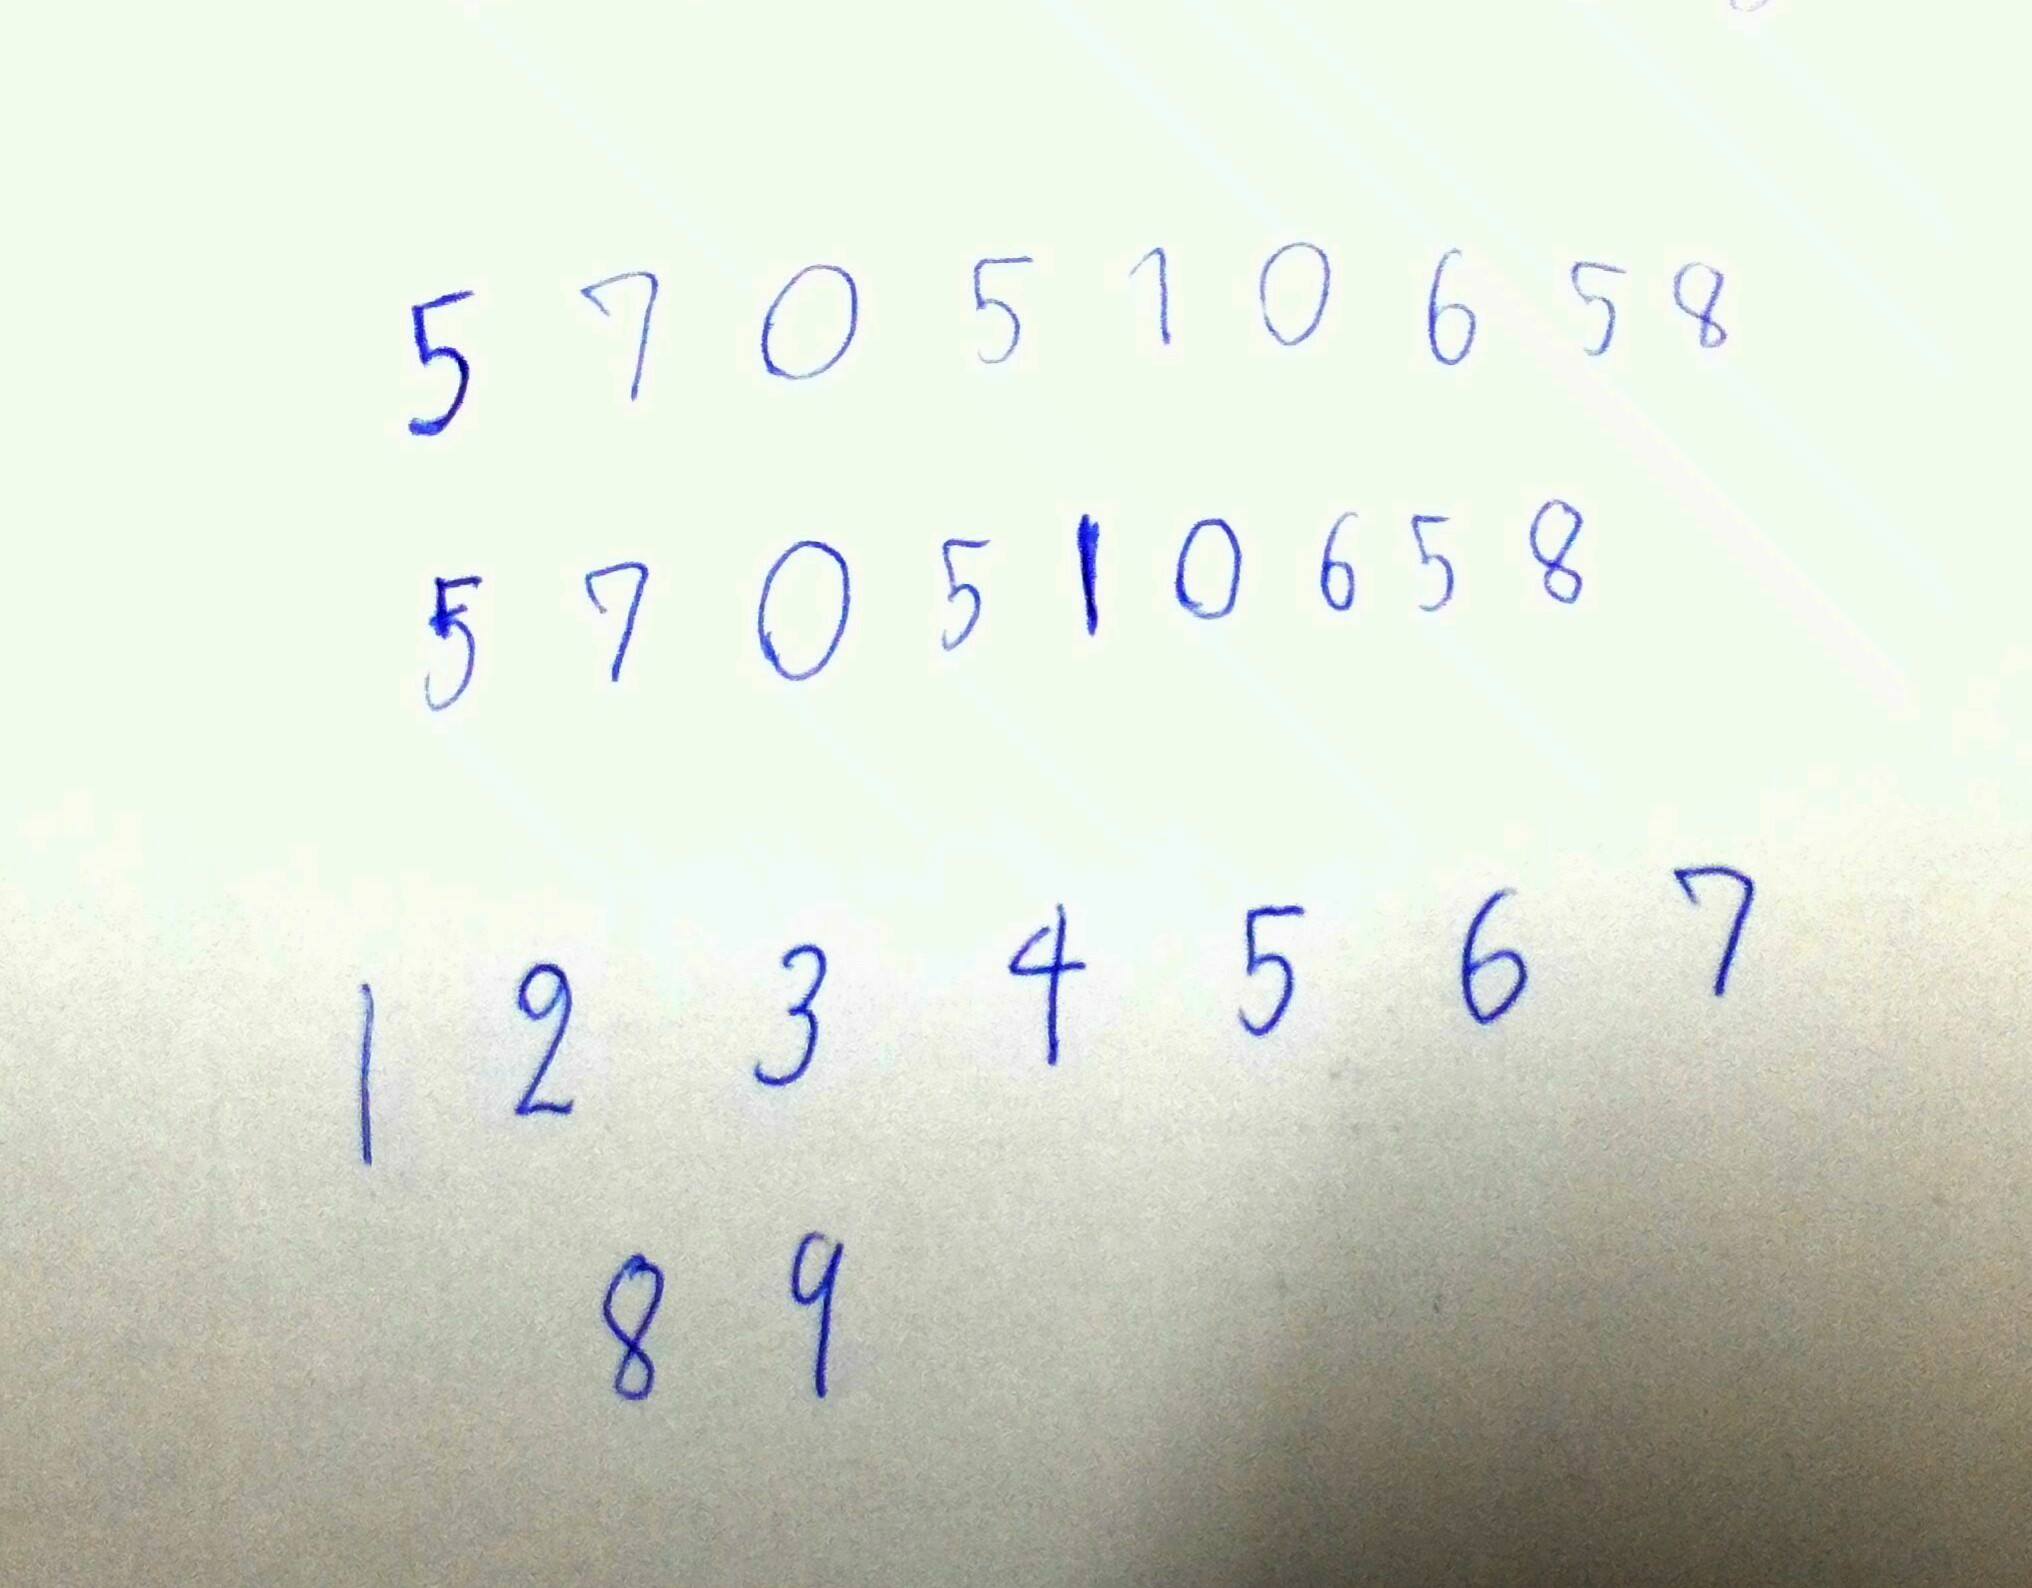 5 7 0 5 1 0 6 5 8
5 7 0 5 1 0 6 5 8
1 2 3 4 5 6 7
8 9